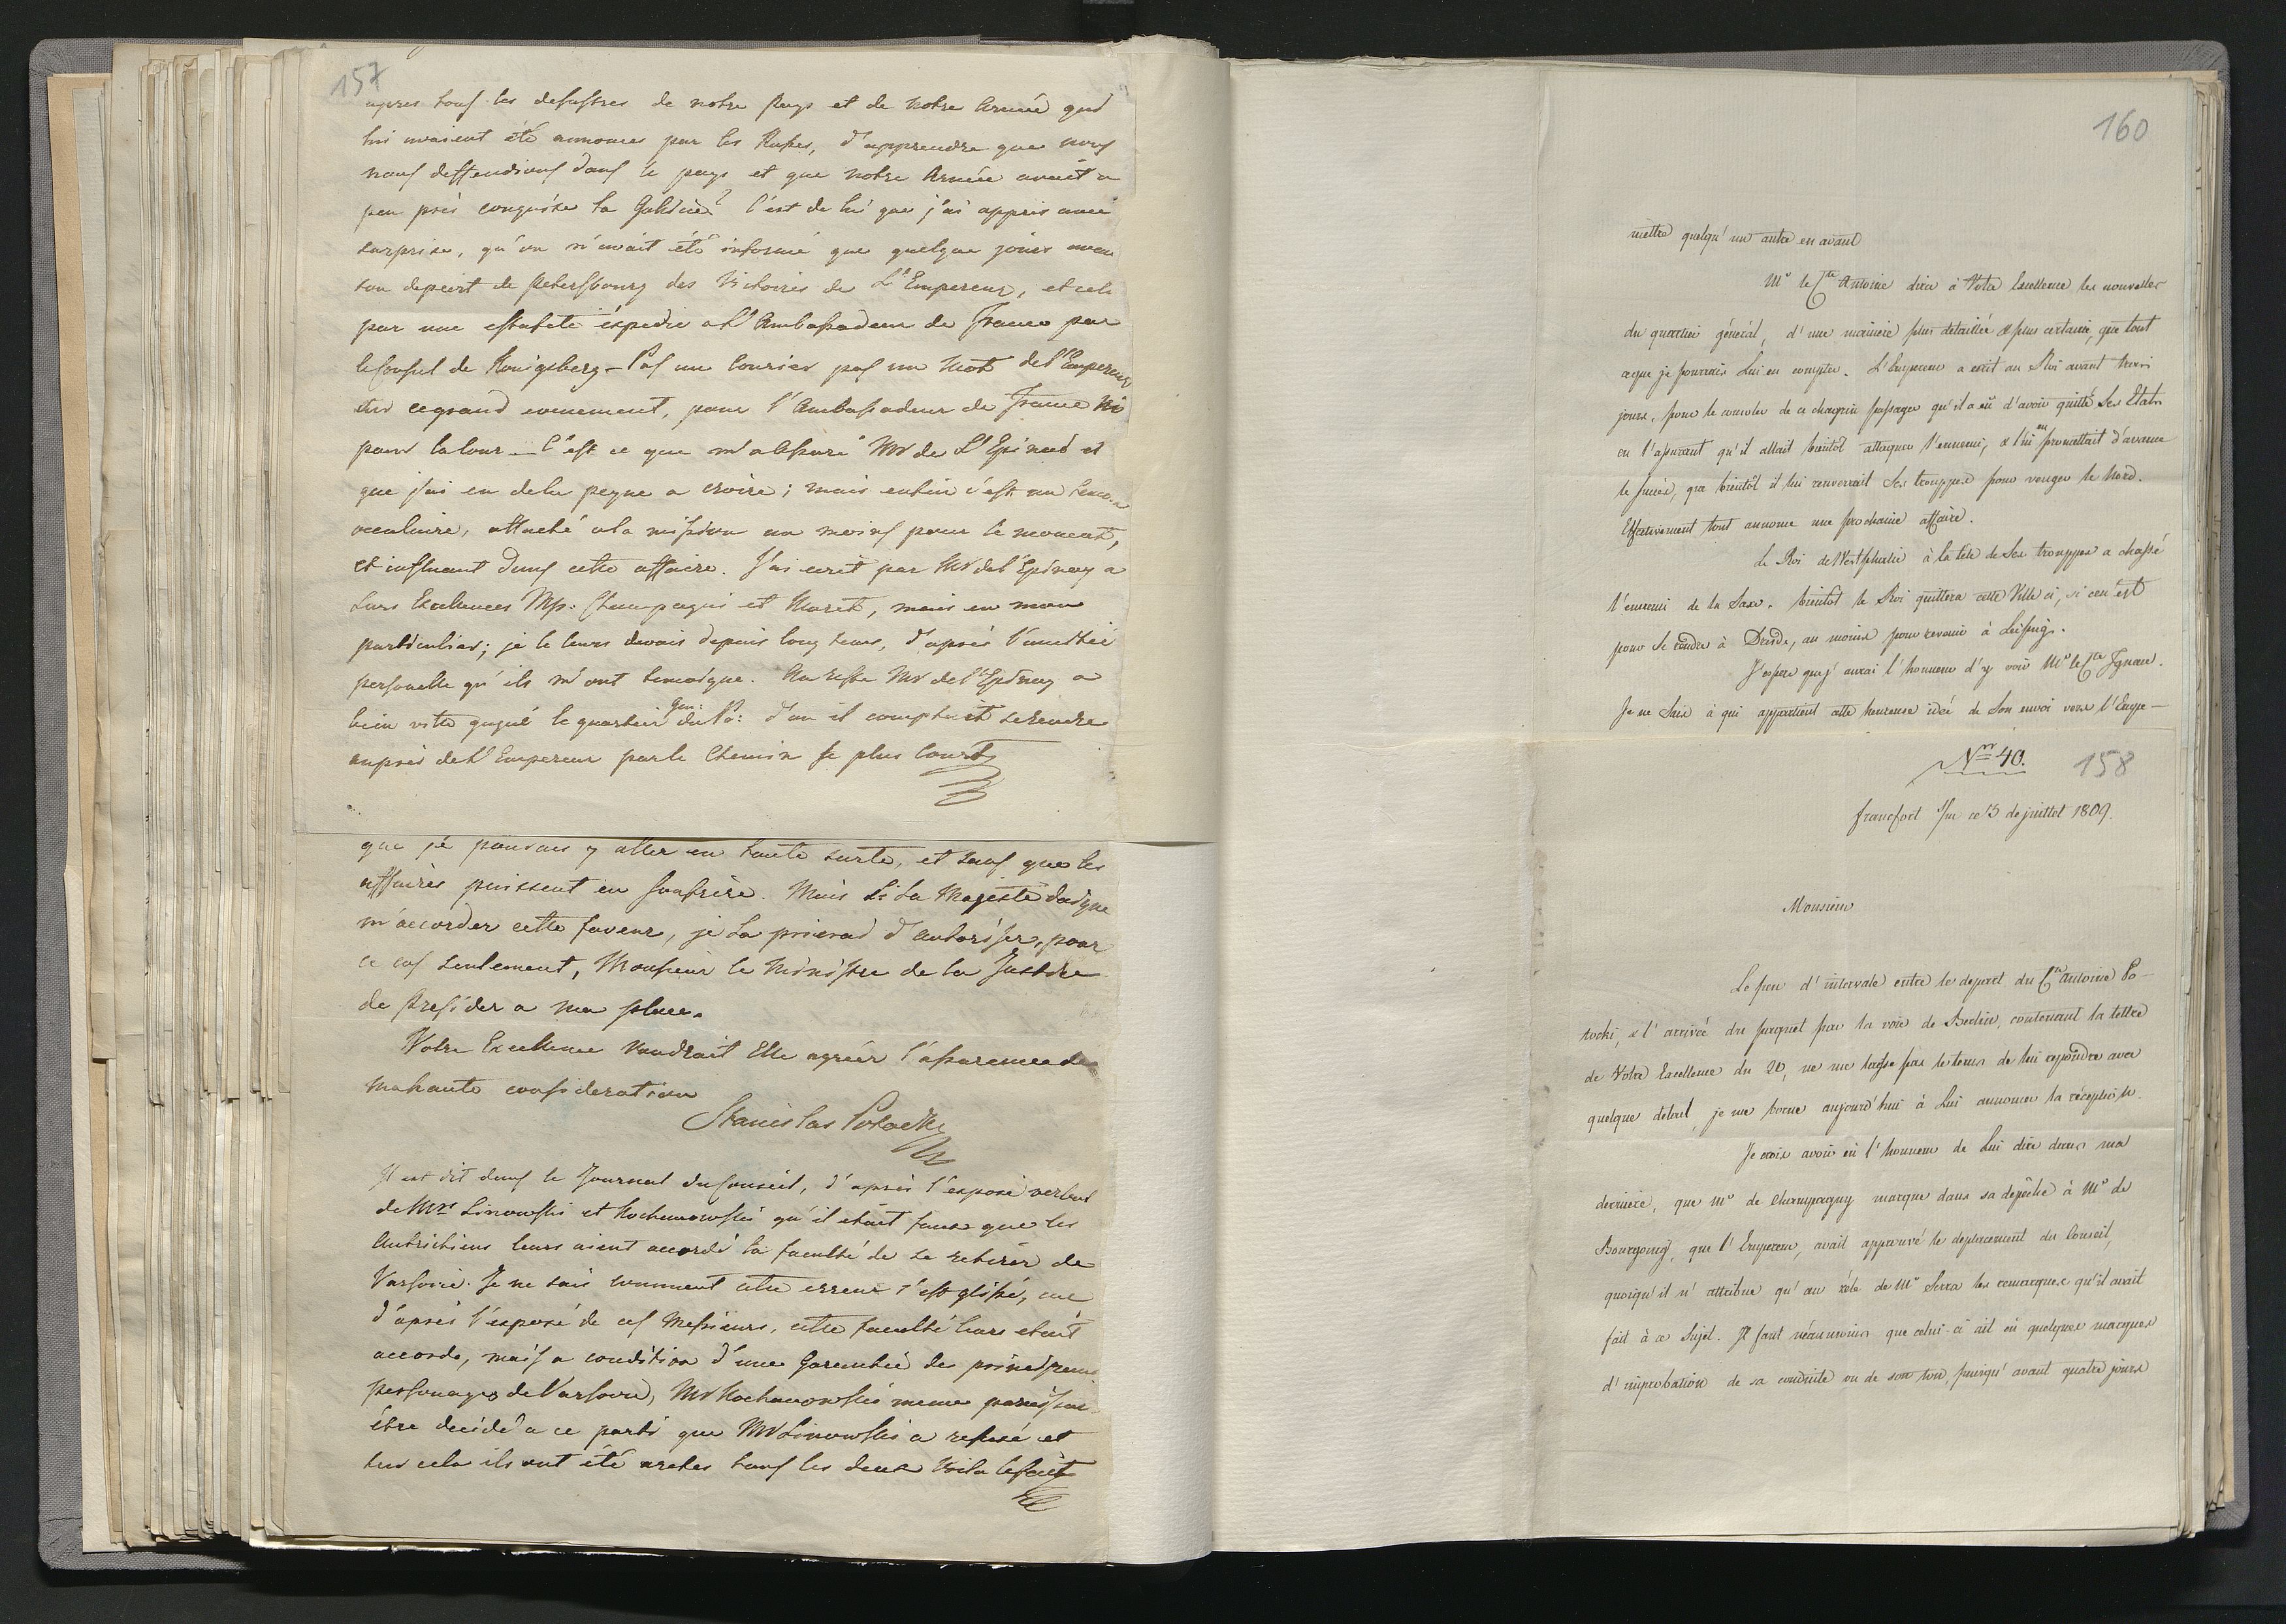 157
apres tous les desastres de notre Pays et de notre Armée qui
lui avaient été annoncés par les Russes, d'apprendre que nous
nous deffendions dans le pays et que notre Armée avait a
peu près conquise la Galicie? C'est de lui que j'ai appris avec
surprise, qu'on n'avait été informé que quelque jours avant
son depart de Petersbourg des Victoires de L'Empereur, et cela
par une estafete éxpedie a l'Ambassadeur de France par
le Consul de Konigsberg – Pas un Courier pas un Mot de l'Empereur
sur ce grand evenement, pour l'Ambassadeur de France Ni
pour la Cour – C'est ce que m'a assuré Mr de L'Epinay et
que j'ai eu de la peyne a croire; mais enfin c'est un temoin
occulaire, attaché a la mission au moins pour le moment,
et influant dans cette affaire. J'ai ecrit par Mr de l'Epinay a
Leurs Excellences Mss: Champagni et Maret, mais en mon
particulier; je le leurs devais depuis long tems, d'après l'amitié
personelle qu'ils m'ont temoigne. Au reste Mr de l'Epinay a
bien vite gagné le quartier gen: du P: d'ou il comptait se rendre
auprès de l'Empereur par le Chemin le plus Court
que je pouvais y aller en toute surte, et sans que les
affaires puissent en souffrire. Mais si Sa Majesté daigne
m'accorder cette faveur, je La prierai d'autoriser, pour
ce cas seulement, Monsieur le Ministre de la Justice
de Presider a ma place.
Votre Excellence voudrait Elle agréer l'assurence de
ma haute consideration
Stanislas Potocki
Il est dit dans le Journal du Conseil, d'après l'exposé verbal
de Mrs Linowski et Kochanowski qu'il etait faux que les
Autrichiens leurs aient accordé la faculté de se retirer de
Varsovie. Je ne sais comment cette erreur s'est glissé, car
d'après l'exposé de ces Messieurs, cette faculté leurs etait
accorde, mais a condition d'une Garentie de principaux
personages de Varsovie, Mr Kochanowski meme paraissait
être decidé a ce parti que Mr Linowski a refusé et
sur cela ils ont été aretes tous les deux Voila le fait
160
mettre quelqu'un autre en avant
Mr le Cte Antoine dira à Votre Excellence les nouvelles
du quartier général, d'une manière plus detaillée & plus certaine, que tout
ce que je pourrais Lui en compter. L'Empereur a ecrit au Roi avant trois
jours, pour le consoler de ce chagrin passager qu'il a eû d'avoir quitté Ses Etats
en l'assurant qu'il allait bientôt attaquer l'ennemi, & lui en promettait d'avance
le succès, que bientôt il lui renverrait Ses trouppes pour venger le Nord.
Effectivement tout annonce une prochaine affaire.
Le Roi de Westphalie à la tête de Ses trouppes a chassé
l'ennemi de la Saxe. bientôt le Roi quittera cette Ville ci, si ce n'est
pour Se rendre à Dresde, au moins pour revenir à Leipsig.
J'espere que j'aurai l'honneur d'y voir Mr le Cte Ignace.
Je ne Sais à qui appartient cette heureuse idée de Son envoi vers l'Empe-
Nro 40.
158
francfort s/m ce 3 de juillet 1809.
Monsieur
Le peu d'intervale entre le depart du Cte Antoine Po-
tocki, & l'arrivée du paquet par la voie de Berlin, contenant la lettre
de Votre Excellence du 20, ne me laisse pas le tems de lui repondre avec
quelque detail, je me borne aujourd'hui à Lui annoncer la réception.
Je crois avoir eû l'honneur de Lui dire dans ma
derniere, que Mr de Champagny marque dans sa depêche à Mr de
Bourgoing, que l'Empereur, avait approuvé le deplacement du Conseil,
quoiqu'il n'attribue qu'au zéle de Mr Serra les remarques qu'il avait
fait à ce Sujet. Il faut néanmoins que celui-ci ait eû quelques marques
d'improbation de sa conduite ou de son ton, puisqu'avant quatre jours